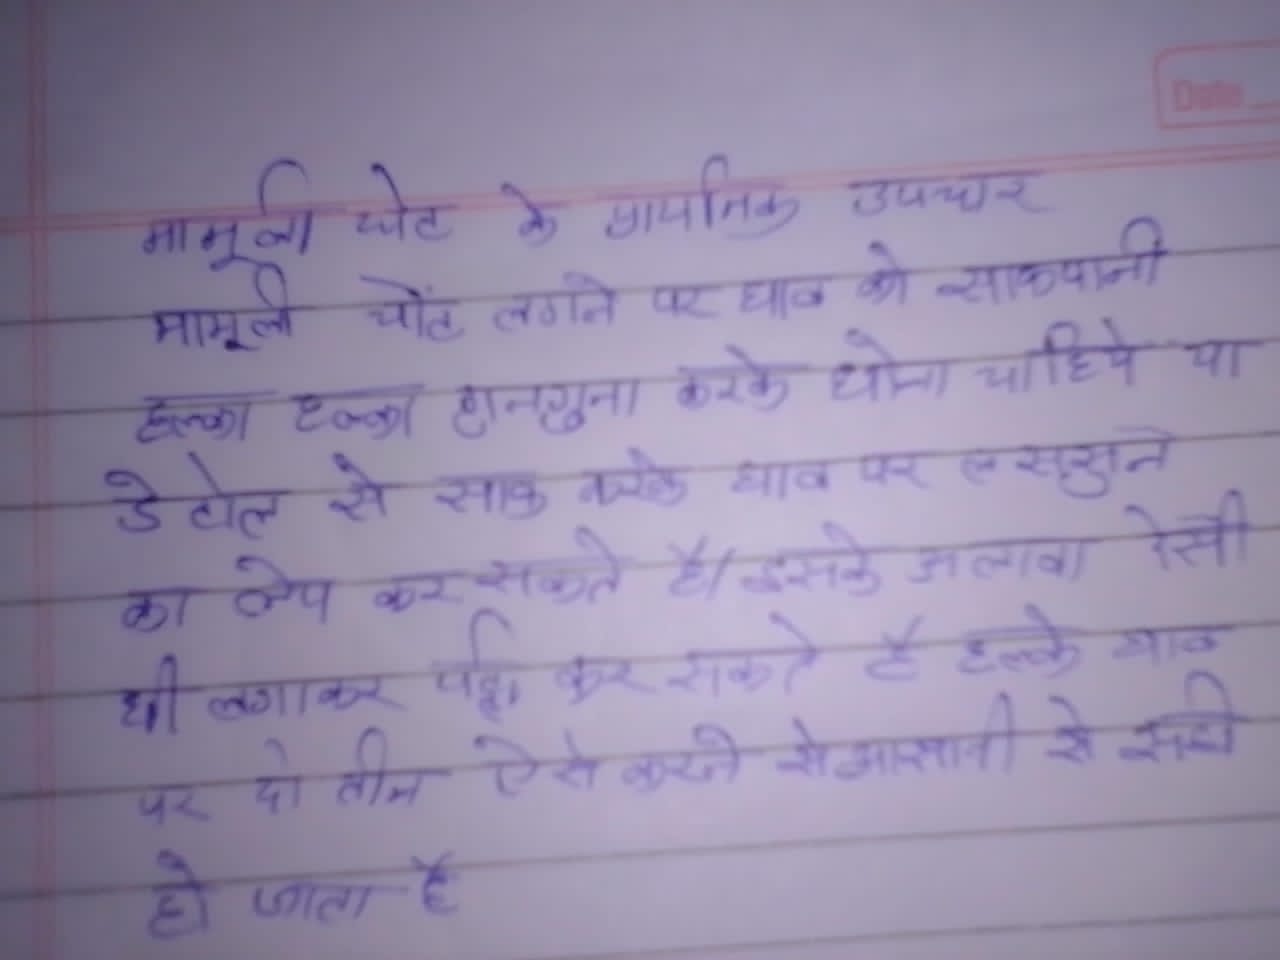 Date
मामूली चोट के प्राथमिक उपचार
मामूली चोंट लगने पर घाव को साफपानी
हल्का हल्का गुनगुना करके धोना चाहिये या
डेटोल से साफ करके घाव पर लसुसन
का लेप कर सकते है। इसके अलावा देसी
घी लगाकर पट्टी कर सकते है हल्के घाव
पर दो तीन ऐसे करने से आसानी से सही
हो जाता है